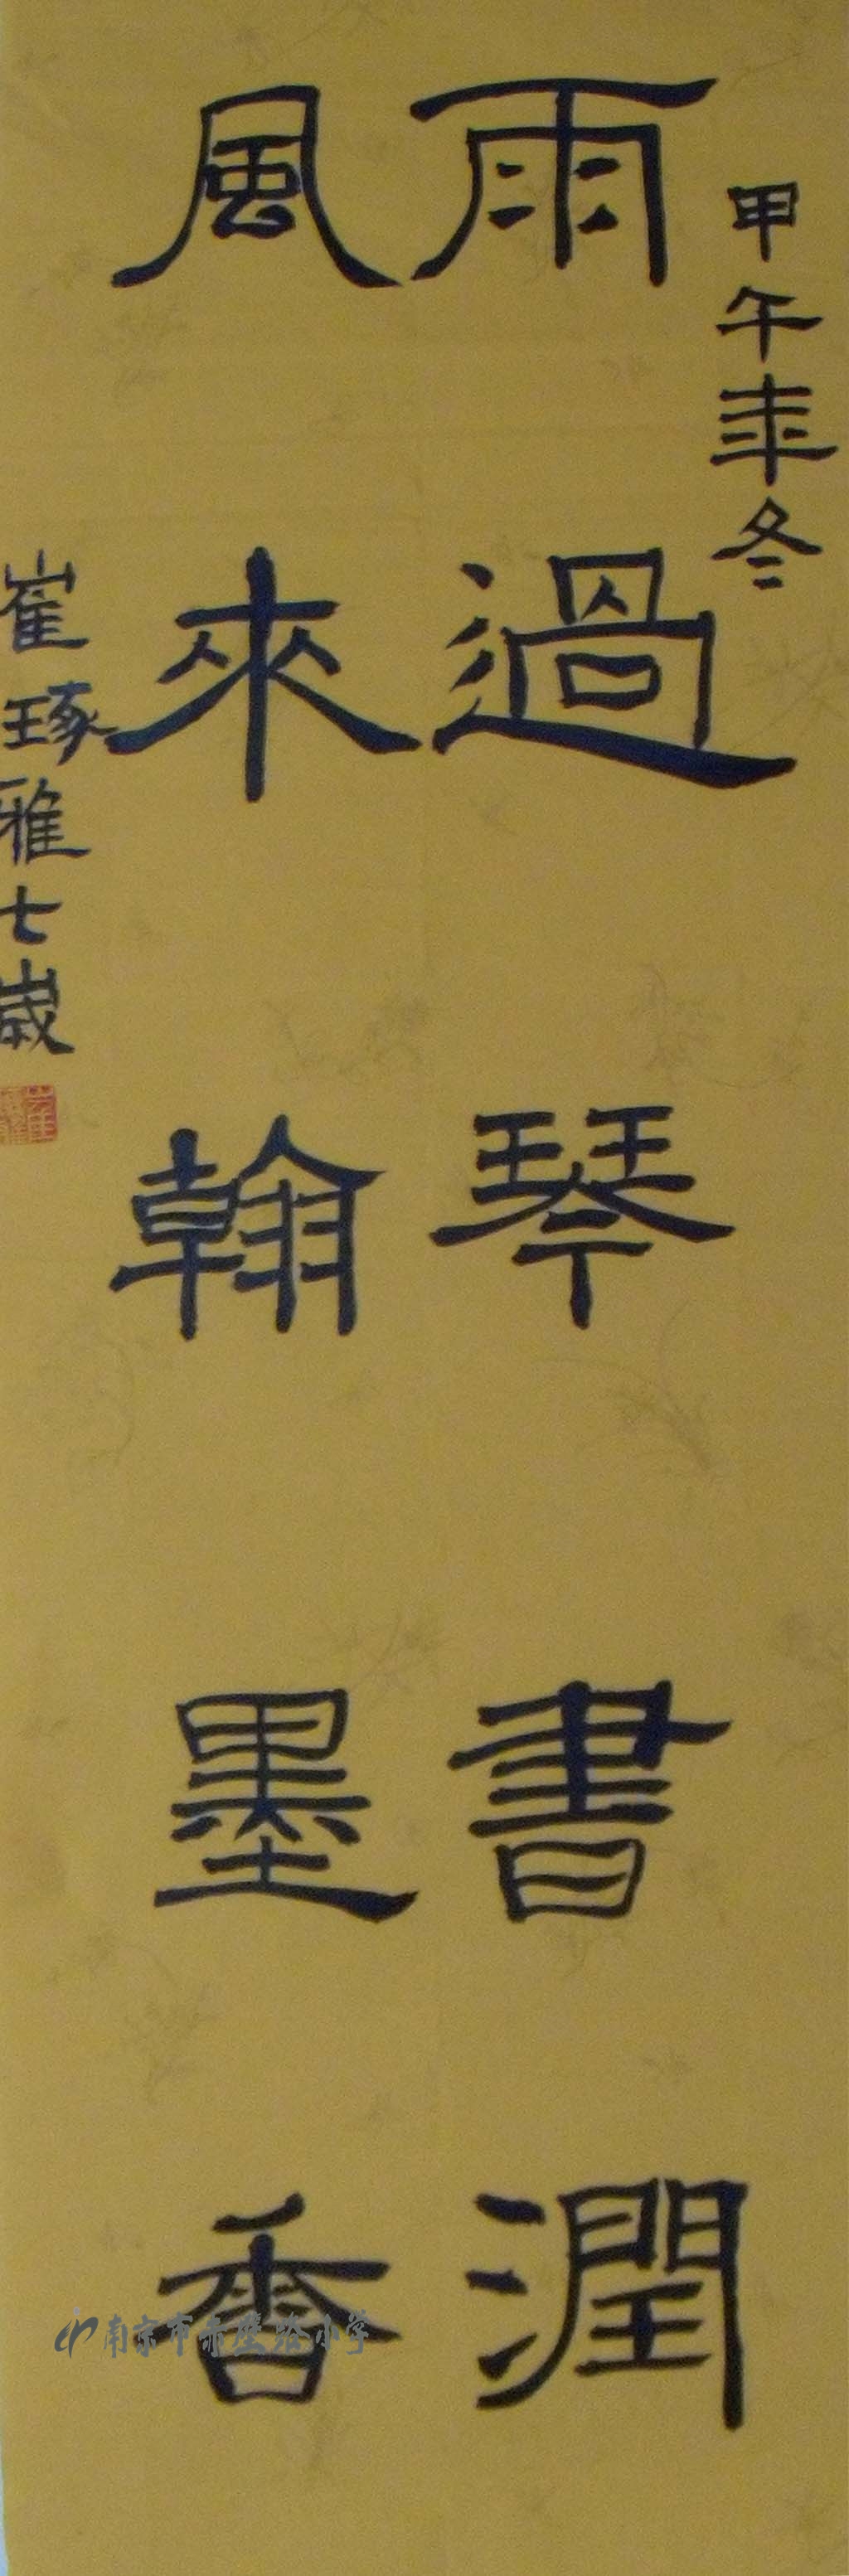 甲午年冬
雨過琴書潤
風來翰墨香
崔琢雅七歲
南京市赤壁路小学